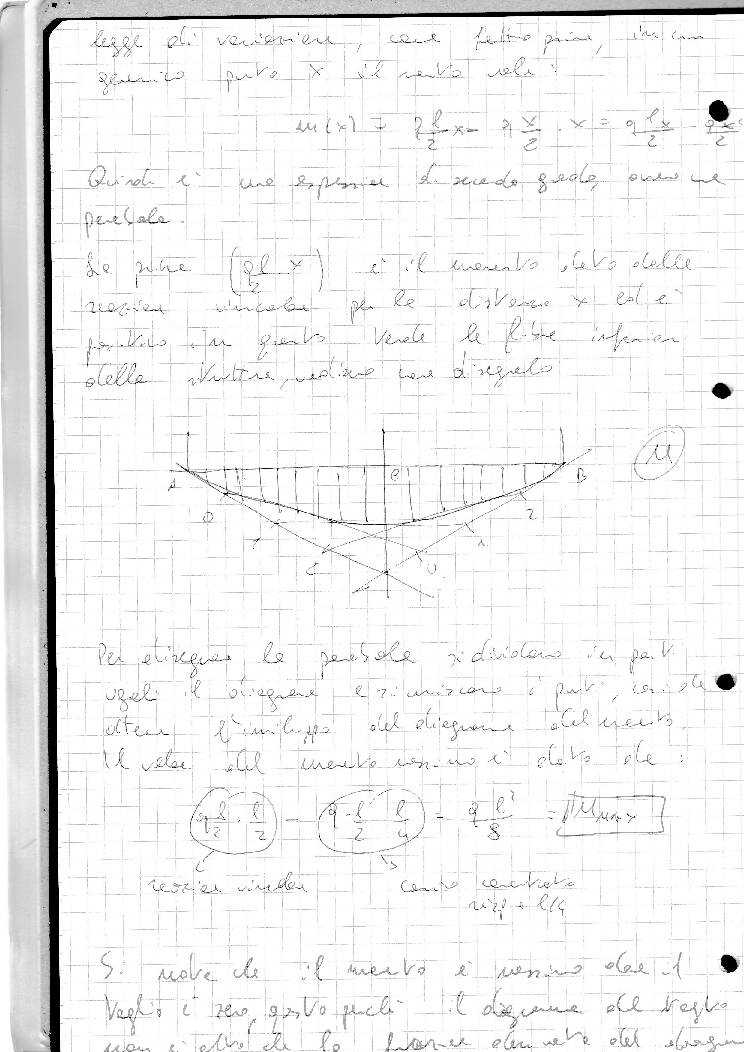 legge di variazione, come fatto prima, in un
generico punto x il momento vale:
M(x) = q l/2 x - q x/2 · x = q l x/2 - q x²/2
Quindi è una espressione di secondo grado, ovvero una
parabola.
La prima (q l/2 x) è il momento dato dalle
reazioni vincolari per la distanza x ed è
positivo in quanto tende le fibre inferiori
della struttura, vediamo come disegnarlo
A C B M
0 2
1 1
2 0
Per disegnare la parabola si dividono in parti
uguali il diagramma e si uniscono i punti, così da
ottenere l'inviluppo del diagramma del momento.
Il valore del momento massimo è dato da:
q l/2 · l/2 - q · l/2 l/4 = q l²/8 = M max
reazioni vincolari carico concentrato
risp. a l/4
Si nota che il momento è massimo dove il
taglio è zero, questo perchè il diagramma del taglio
non è altro che la funzione derivata del diagramma